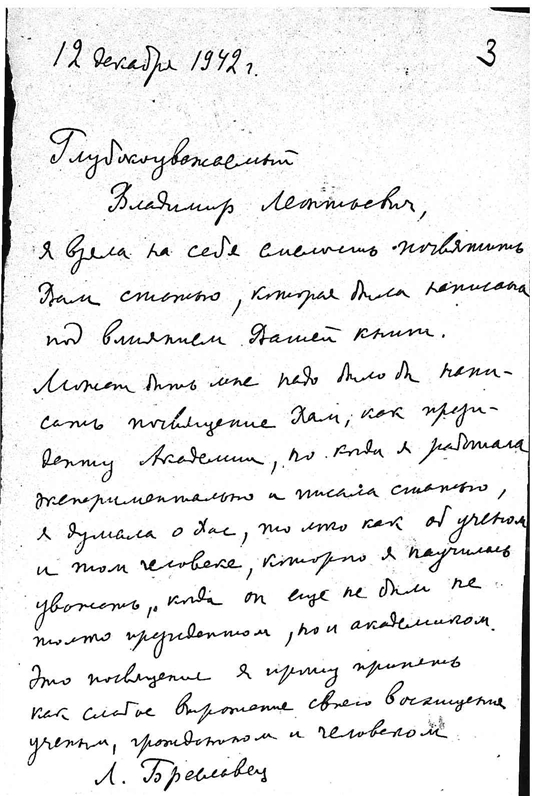 12 декабря 1942 г.
3
Глубокоуважаемый
Владимир Леонтьевич,
я взяла на себя смелость посвятить
Вам статью, которая была написана
под влиянием Вашей книги.
Может быть мне надо было бы напи-
сать посвящение Вам, как прези-
денту Академии, но когда я работала
экспериментально и писала статью,
я думала о Вас, только как об ученом
и том человеке, которого я научилась
уважать, когда он еще не был не
только президентом, но и академиком.
Это посвящение я прошу принять
как слабое выражение своего восхищения
ученым, гражданином и человеком
Л. Бреславец